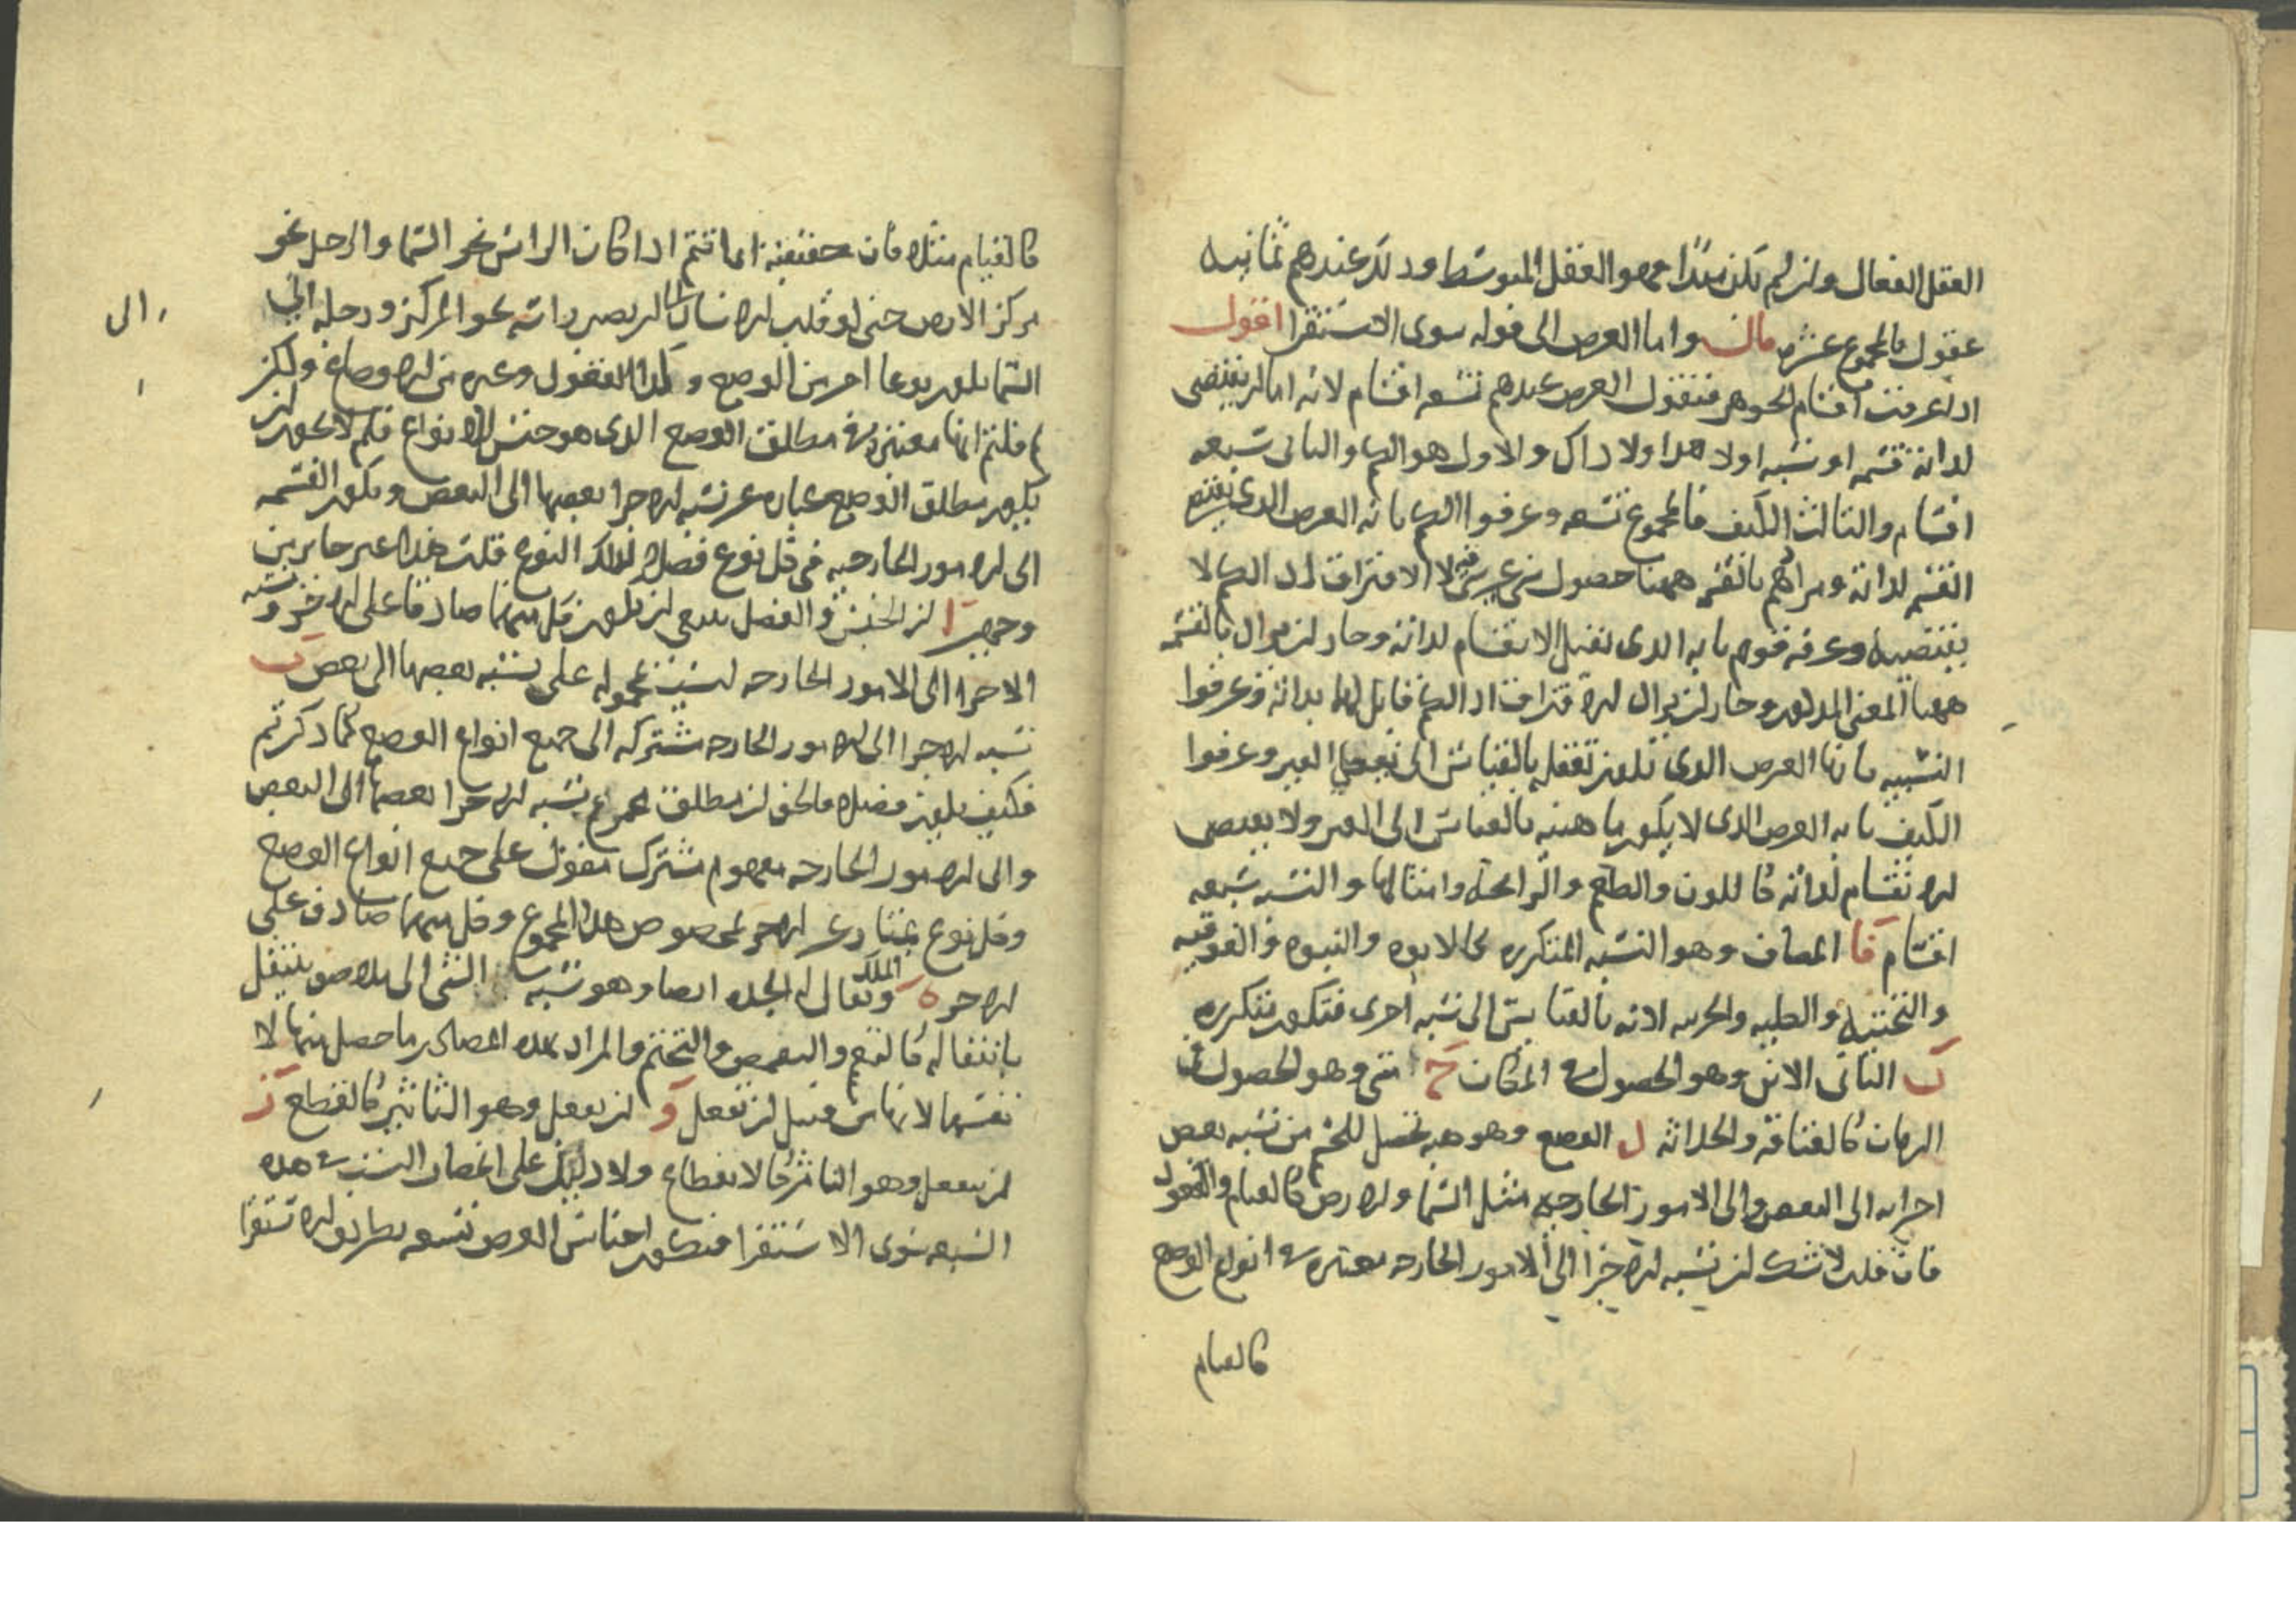 العقل الفعال وان لم يكن مبدا فهو العقل المتوسط وذلك عندهم ثمانية
عقول فالمجموع عشرة قال واما العرض الى قوله سوى الاستقرا اقول
اذا عرفت اقسام الجوهر فنقول العرض عندهم تسعه اقسام لانه اما ان يقتضى
لذاته قسمه او نسبه اولا هذا ولا ذاك والاول هو الكم والثانى سبعه
اقسام والثالث الكيف فالمجموع تسعه وعرفوا الكم بانه العرض الذى يقتضى
القسمه لذاته ومرادهم بالقسمه ههنا حصول شى غير شى فيه لا الافتراق اذ الكم لا
يقتضيه وعرفه قوم بانه الذى يقبل الانقسام لذاته وجاز ان يراد بالقسمه
ههنا المعنى المذكور وجاز ان يراد الافتراق اذ الكم قابل لها بذاته وعرفوا
النسبيه بانها العرض الذى يكون تعقله بالقياس الى تعقل الغير وعرفوا
الكيف بانه العرض الذى لا يكون ماهيته بالقياس الى الغير ولا يقتضى
الانقسام لذاته كاللون والطعم والرائحة وامثالها والنسبه سبعه
اقسام ا المضاف وهو النسبه المتكرره كالابوه والبنوه والفوقيه
والتحتيه والطلبه والحرسه لانه بالقياس الى نسبه اخرى فتكون متكرره
ب الثانى الاين وهو الحصول فى المكان ح متى وهو الحصول فى
الزمان كالعتاقه والحداثه د الوضع وهو هيه تحصل للجسم من نسبه بعض
اجزايه الى البعض والى الامور الخارجيه مثل السما والارض كالقيام والقعود
فان قلت لا شك ان نسبه الاجزا الى الامور الخارجه معتبره فى انواع الوضع
كالقيام
كالقيام مثلا فان حقيقته انما تتم اذا كان الراس نحو السما والرجل نحو
مركز الارض حتى لو قلب الانسان الى ان يصير راسه نحو المركز ورجله الى
السما يكون نوعا اخر من الوضع وكذا القعود وغيره من الاوضاع ولكن
لم قلتم انها معتبره فى مطلق الوضع الذى هو جنس للانواع فلم لا يجوز ان
يكون مطلق الوضع عباره عن نسبه الاجزا بعضها الى البعض ويكون القسمه
الى الامور الخارجيه فى كل نوع فصلا لذلك النوع قلت هذا غير جايز من
وجهين ا ان الجنس والفصل ينبغى ان يكون كل منهما صادقا على الاخر ونسبه
الاجزا الى الامور الخارجه ليست محموله على نسبه بعضها الى بعض ب
نسبه الاجزا الى الامور الخارجه مشتركه الى جميع انواع الوضع كما ذكرتم
فكيف يكون فصلا فالحق ان مطلق مجموع نسبه الاجزا بعضها الى البعض
والى الامور الخارجه مفهوم مشترك مقول على جميع انواع الوضع
وكل نوع يمتاز عن الاخر بخصوص هذا المجموع وكل منهما صادق على
الاخر ه الملك ويقال له الجده ايضا وهو نسبه الشى الى ملاصق ينتقل
بانتقاله كالتعمم والتقمص والتختم والمراد بهذه المصادر ما حصل منها لا
نفسها لانها من قبيل ان يفعل و ان يفعل وهو التاثير كالقطع ز
ان ينفعل وهو التاثر كالانقطاع ولا دليل على انحصار النسب فى هذه
السبعه سوى الاستقرا فيكون اجناس العرض تسعه بطريق الاستقرا
الى